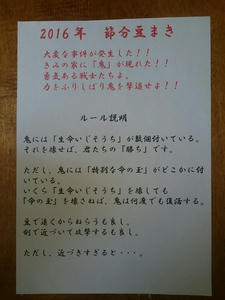 2016年　節分豆まき
大変な事件が発生した！！
きみの家に「鬼」が現れた！！
勇気ある戦士たちよ。
力をふりしぼり鬼を撃退せよ！！
ルール説明
鬼には「生命いじそうち」が数個付いている。
それを壊せば、君たちの「勝ち」です。
ただし、鬼には「特別な命の玉」がどこかに付
いている。
いくら「生命いじそうち」を壊しても
「命の玉」を壊さねば、鬼は何度でも復活する。
豆で遠くからねらうも良し。
剣で近づいて攻撃するも良し。
ただし、近づきすぎると・・・。